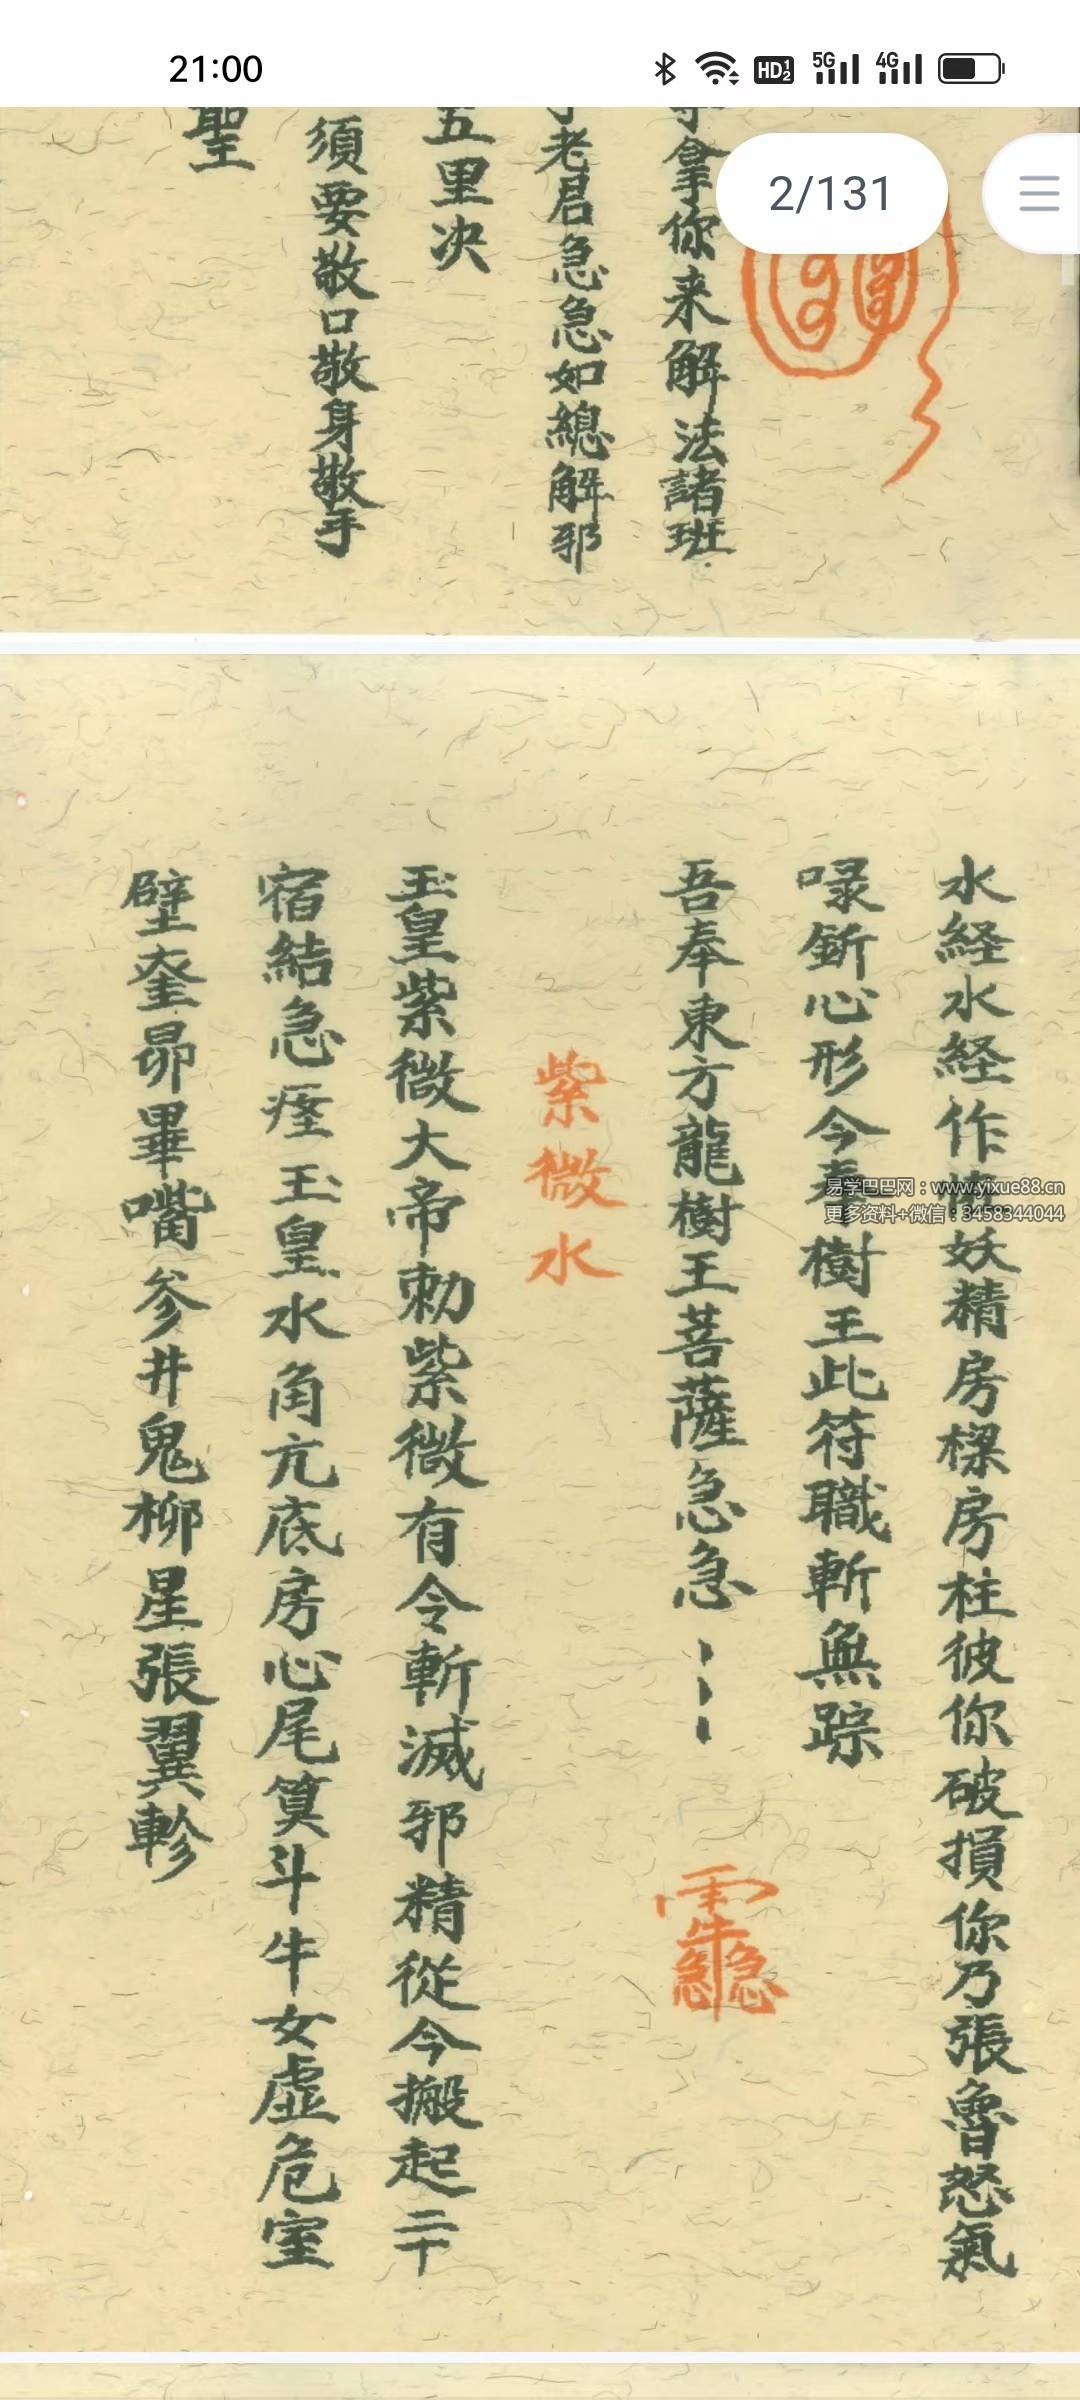 21:00
HD 1 2 5G 4G
2/131
拿你来解法諸班
老君急急如總解邪
五里决
須要敬口敬身敬手
聖
水経水経作 妖精房樑房柱彼你破損你乃張魯怒氣
㖨釿心形今奉樹王此符職斬無踪
易学巴巴网：www.yixue88.cn
更多资料+微信：3458344044
吾奉東方龍樹王菩薩急急
紫微水
玉皇紫微大帝勅紫微有令斬滅邪精從今搬起二十
宿結急痊玉皇水角亢底房心尾箕斗牛女虛危室
壁奎昴畢嘴參井鬼柳星張翼軫